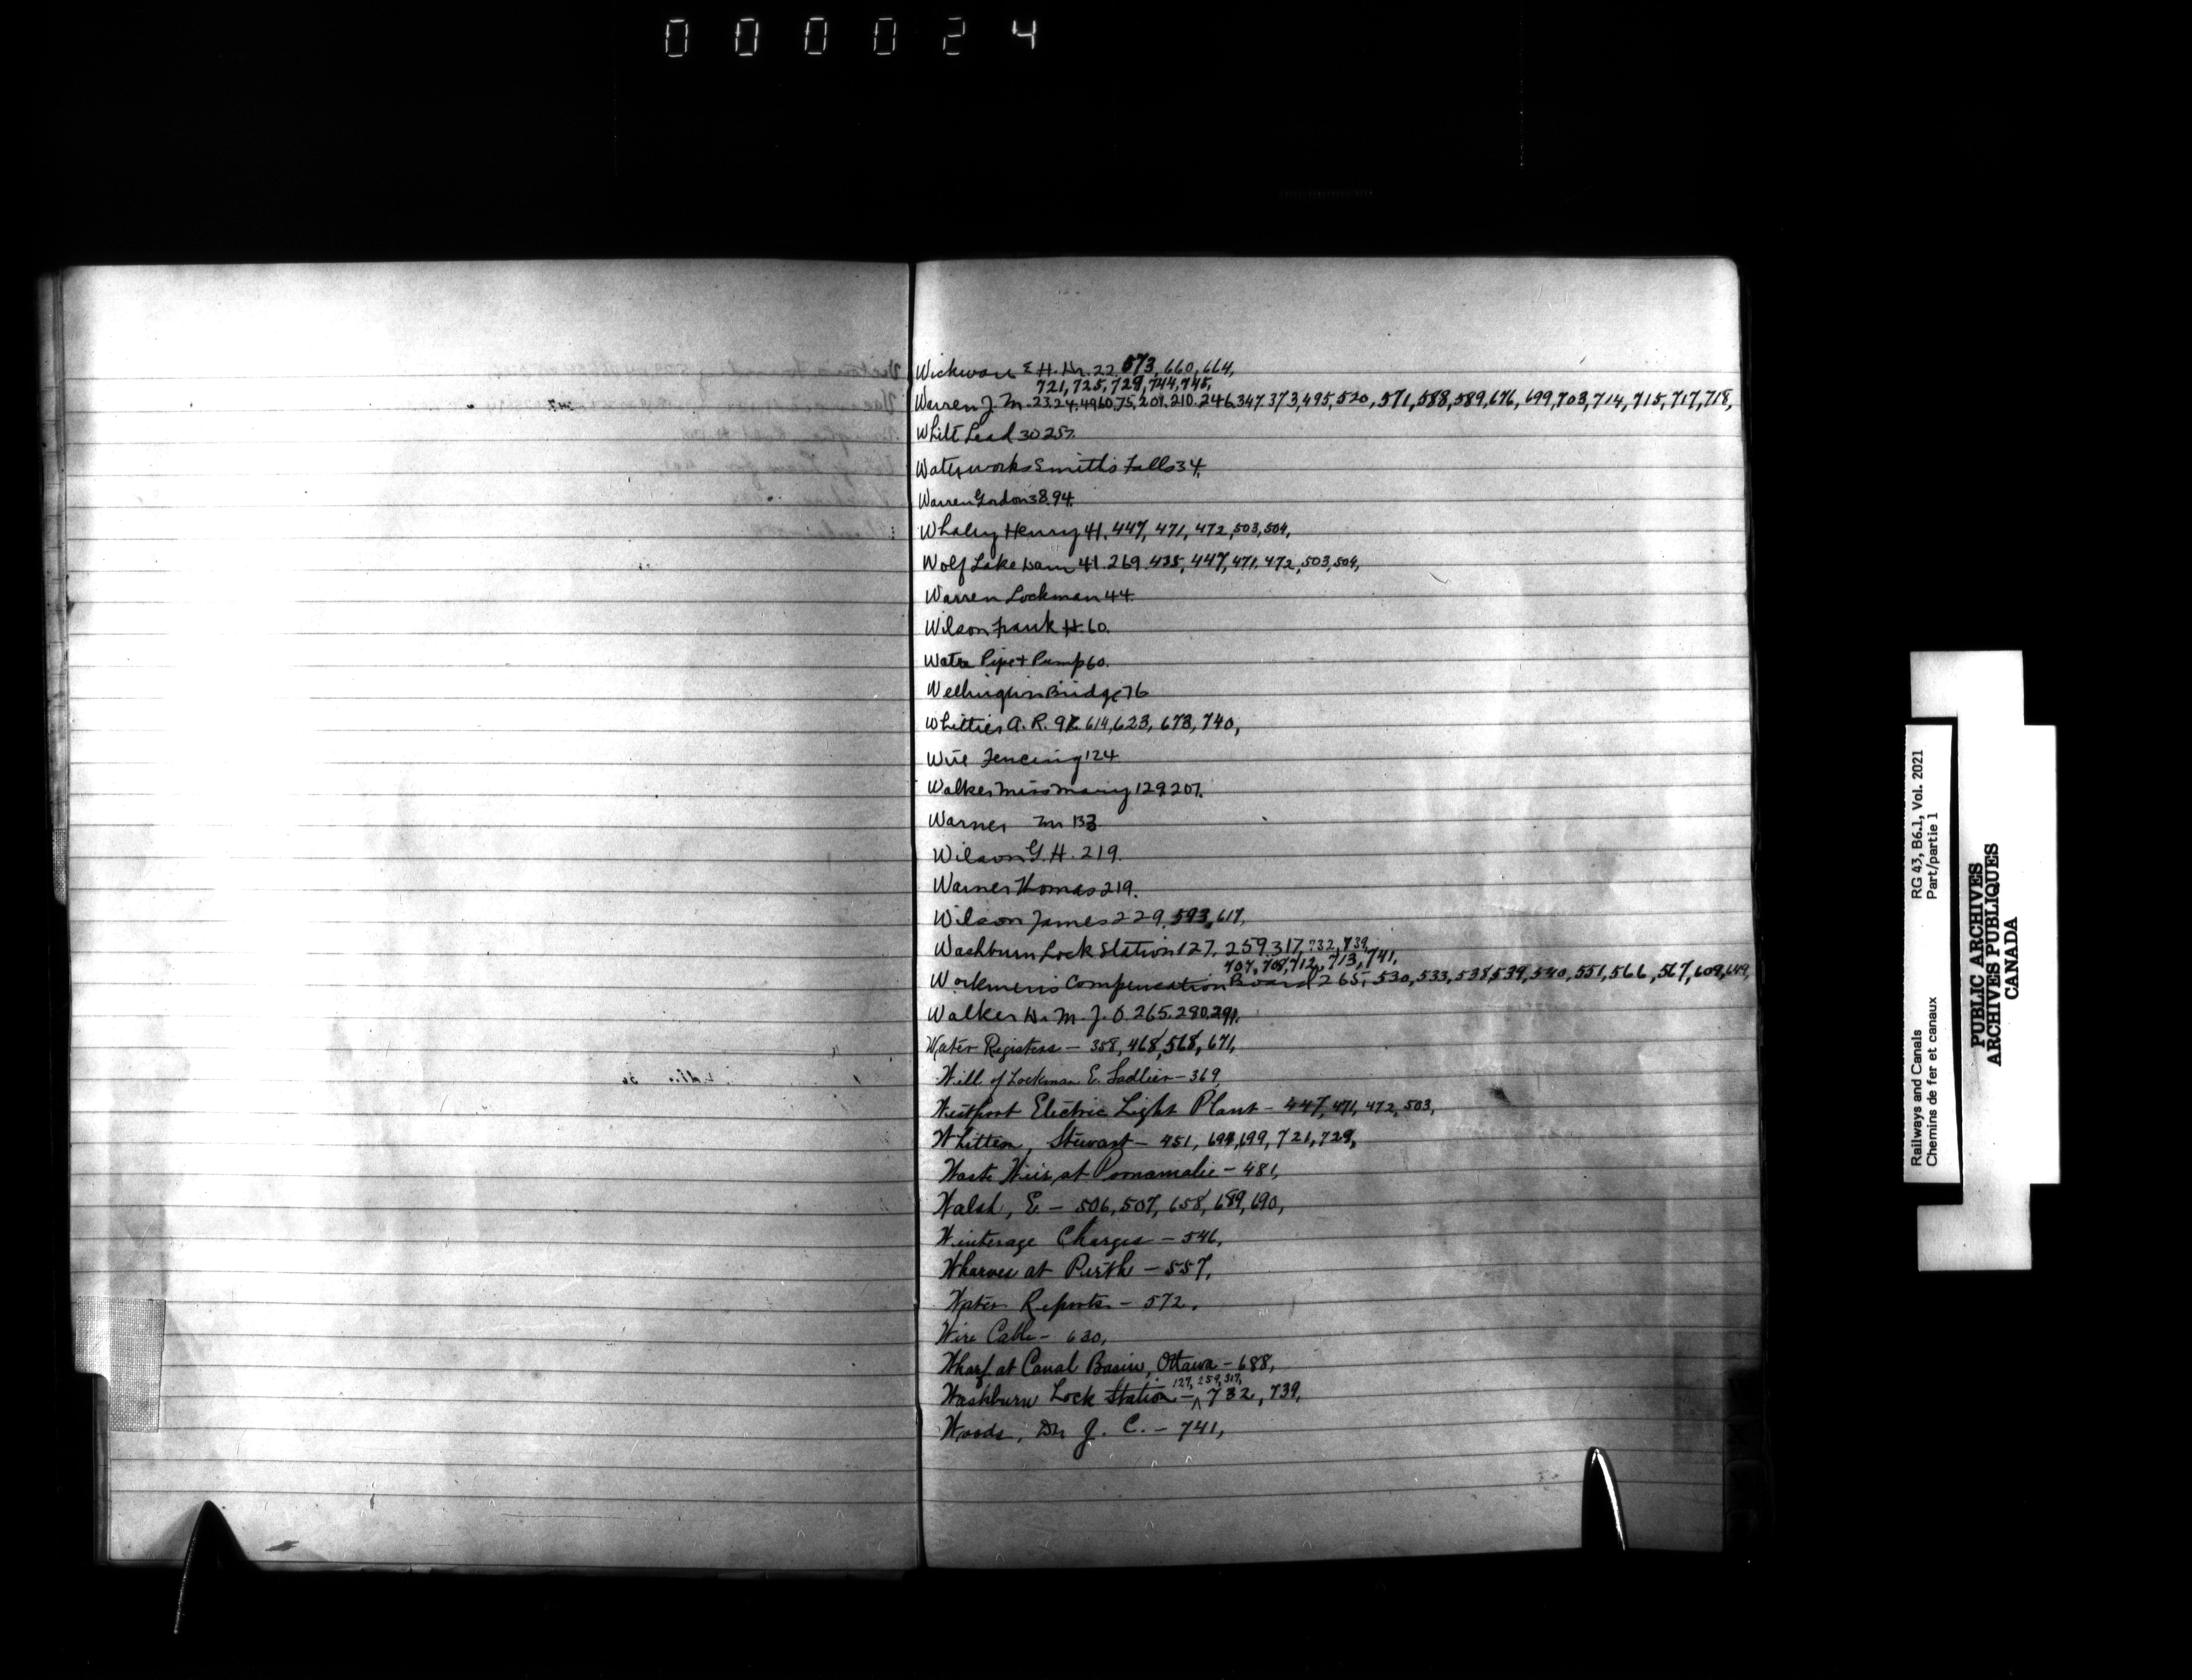 000024
Wickware E. H. Dr. 22. 573, 660, 664,
721, 725, 729, 744, 745,
Warren J. M. 23.24.49.60.75.209.210.246.347.373,495,520,571,588,589,676,699,703,714,715,717,718,
White Lead 30.257.
Waterworks Smith's Falls 34.
Warren Gordon 38.94.
Whaley Henry 41. 447, 471, 472, 503, 504,
Wolf Lake Dam 41. 269. 435, 447, 471, 472, 503, 504,
Warren Lockman 44.
Wilson Frank H. 60.
Water Pipe + Pump 60.
Wellington Bridge 76
Whittier A. R. 614, 623, 673, 740,
Wire Fencing 124.
Walker Miss Mary 129.207.
Warner 133
Wilson G. H. 219.
Warner Thomas 219.
Wilson James 229. 593, 617,
Washburn Lock Station 127. 259. 317, 732, 739,
707, 708, 712, 713, 741,
Workmen's Compensation Board 265, 530, 533, 538, 539, 540, 551, 566, 567, 609, 649,
Walker D. M. J. O. 265. 280. 291.
Water Registers – 358, 468, 568, 671,
Will of Lockman E. Sadlier – 369,
Westport Electric Light Plant – 447, 471, 472, 503,
Whitten, Stewart – 451, 699, 721, 729,
Waste Weir at Poonamalie – 481,
Walsh, E – 506, 507, 658, 689, 690,
Winterage Charges – 546,
Wharves at Perth – 557,
Water Reports – 572,
Wire Cable – 630,
Wharf at Canal Basin, Ottawa – 688,
127, 259, 317,
Washburn Lock Station – ^ 732, 739,
Woods, Dr. J. C. – 741,
Railways and Canals RG 43, B6.1, Vol. 2021
Chemins de fer et canaux Part/partie 1
PUBLIC ARCHIVES
ARCHIVES PUBLIQUES
CANADA